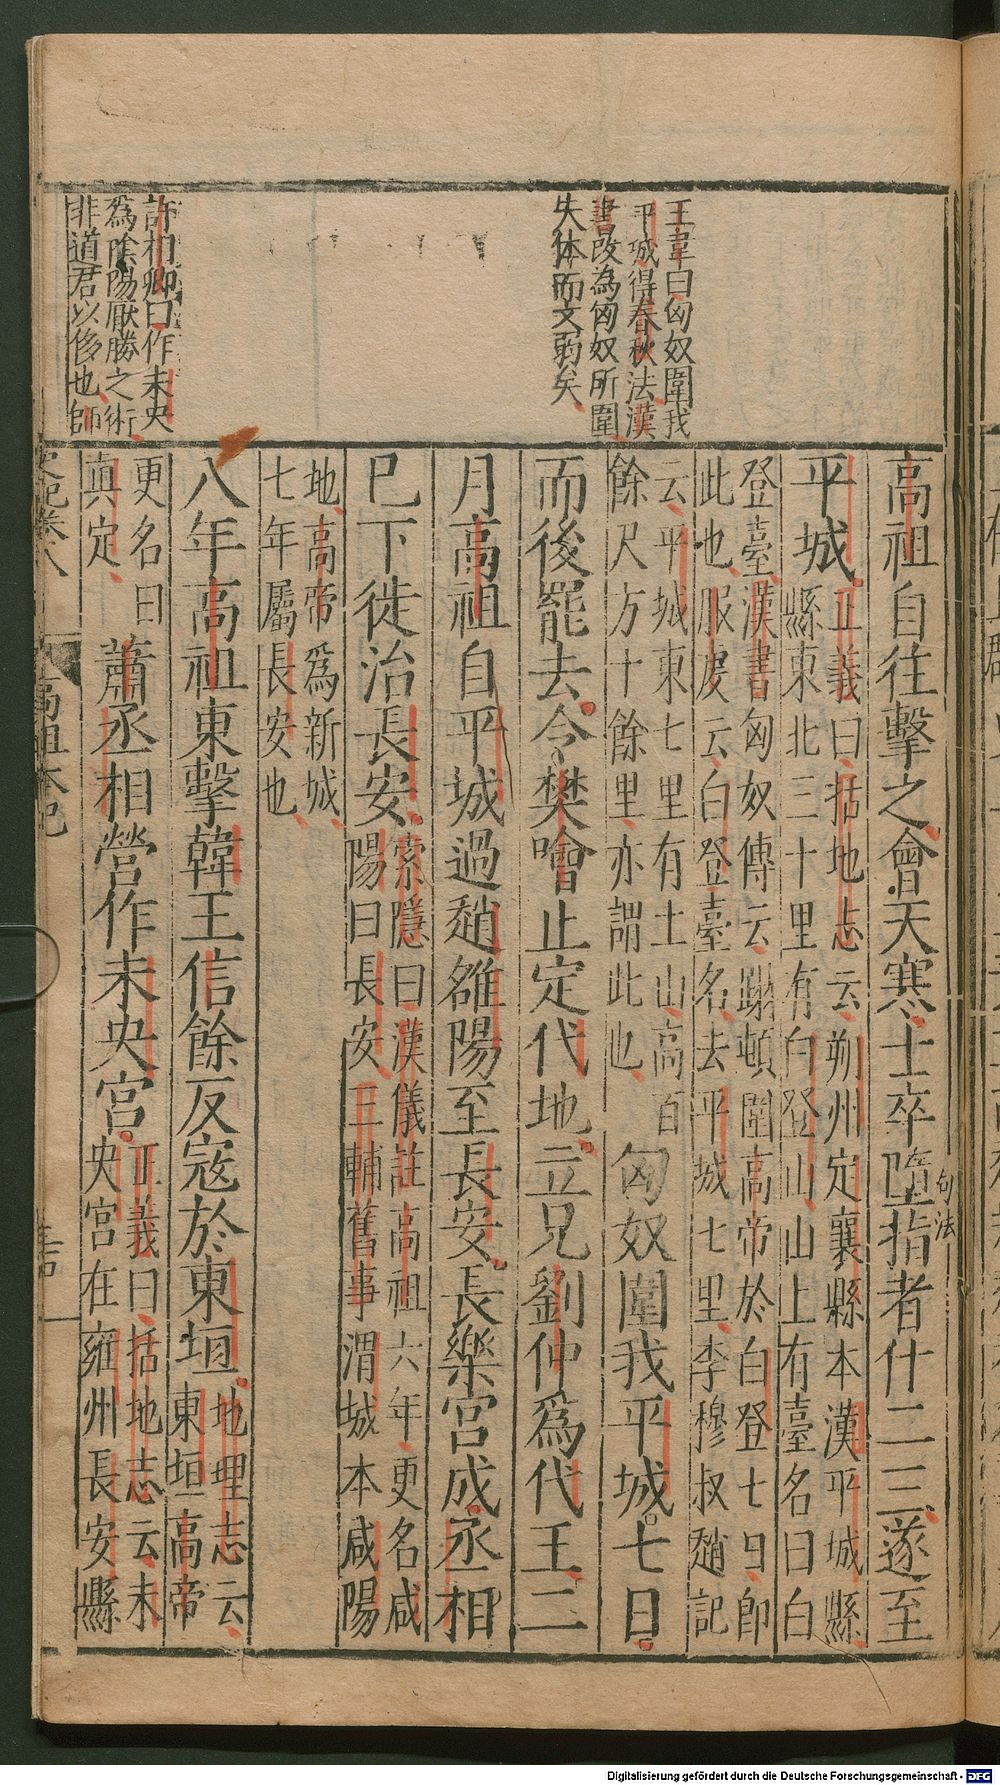 王韋曰匈奴圍我
平城得春秋法漢
書改為匈奴所圍
失体而文弱矣
許相卿曰作未央
為陰陽厭勝之術
非道君以侈也師
高祖自往擊之會天寒士卒墮指者什二三遂至
句法
平城
正義曰括地志云朔州定襄縣本漢平城縣
縣東北三十里有白登山山上有臺名曰白
登臺漢書匈奴傳云蹋頓圍高帝於白登七日即
此也服虔云白登臺名去平城七里李穆叔趙記
云平城東七里有土山高百
餘尺方十餘里亦謂此也
匈奴圍我平城七日
而後罷去令樊噲止定代地立兄劉仲爲代王二
月高祖自平城過趙雒陽至長安長樂宮成丞相
已下徙治長安
索隱曰漢儀註高祖六年更名咸
陽曰長安三輔舊事渭城本咸陽
地高帝爲新城
七年屬長安也
八年高祖東擊韓王信餘反寇於東垣
地理志云
東垣高帝
更名曰
真定
蕭丞相營作未央宮
正義曰括地志云未
央宮在雍州長安縣
史記卷八
高祖本紀
Digitalisierung gefördert durch die Deutsche Forschungsgemeinschaft - DFG